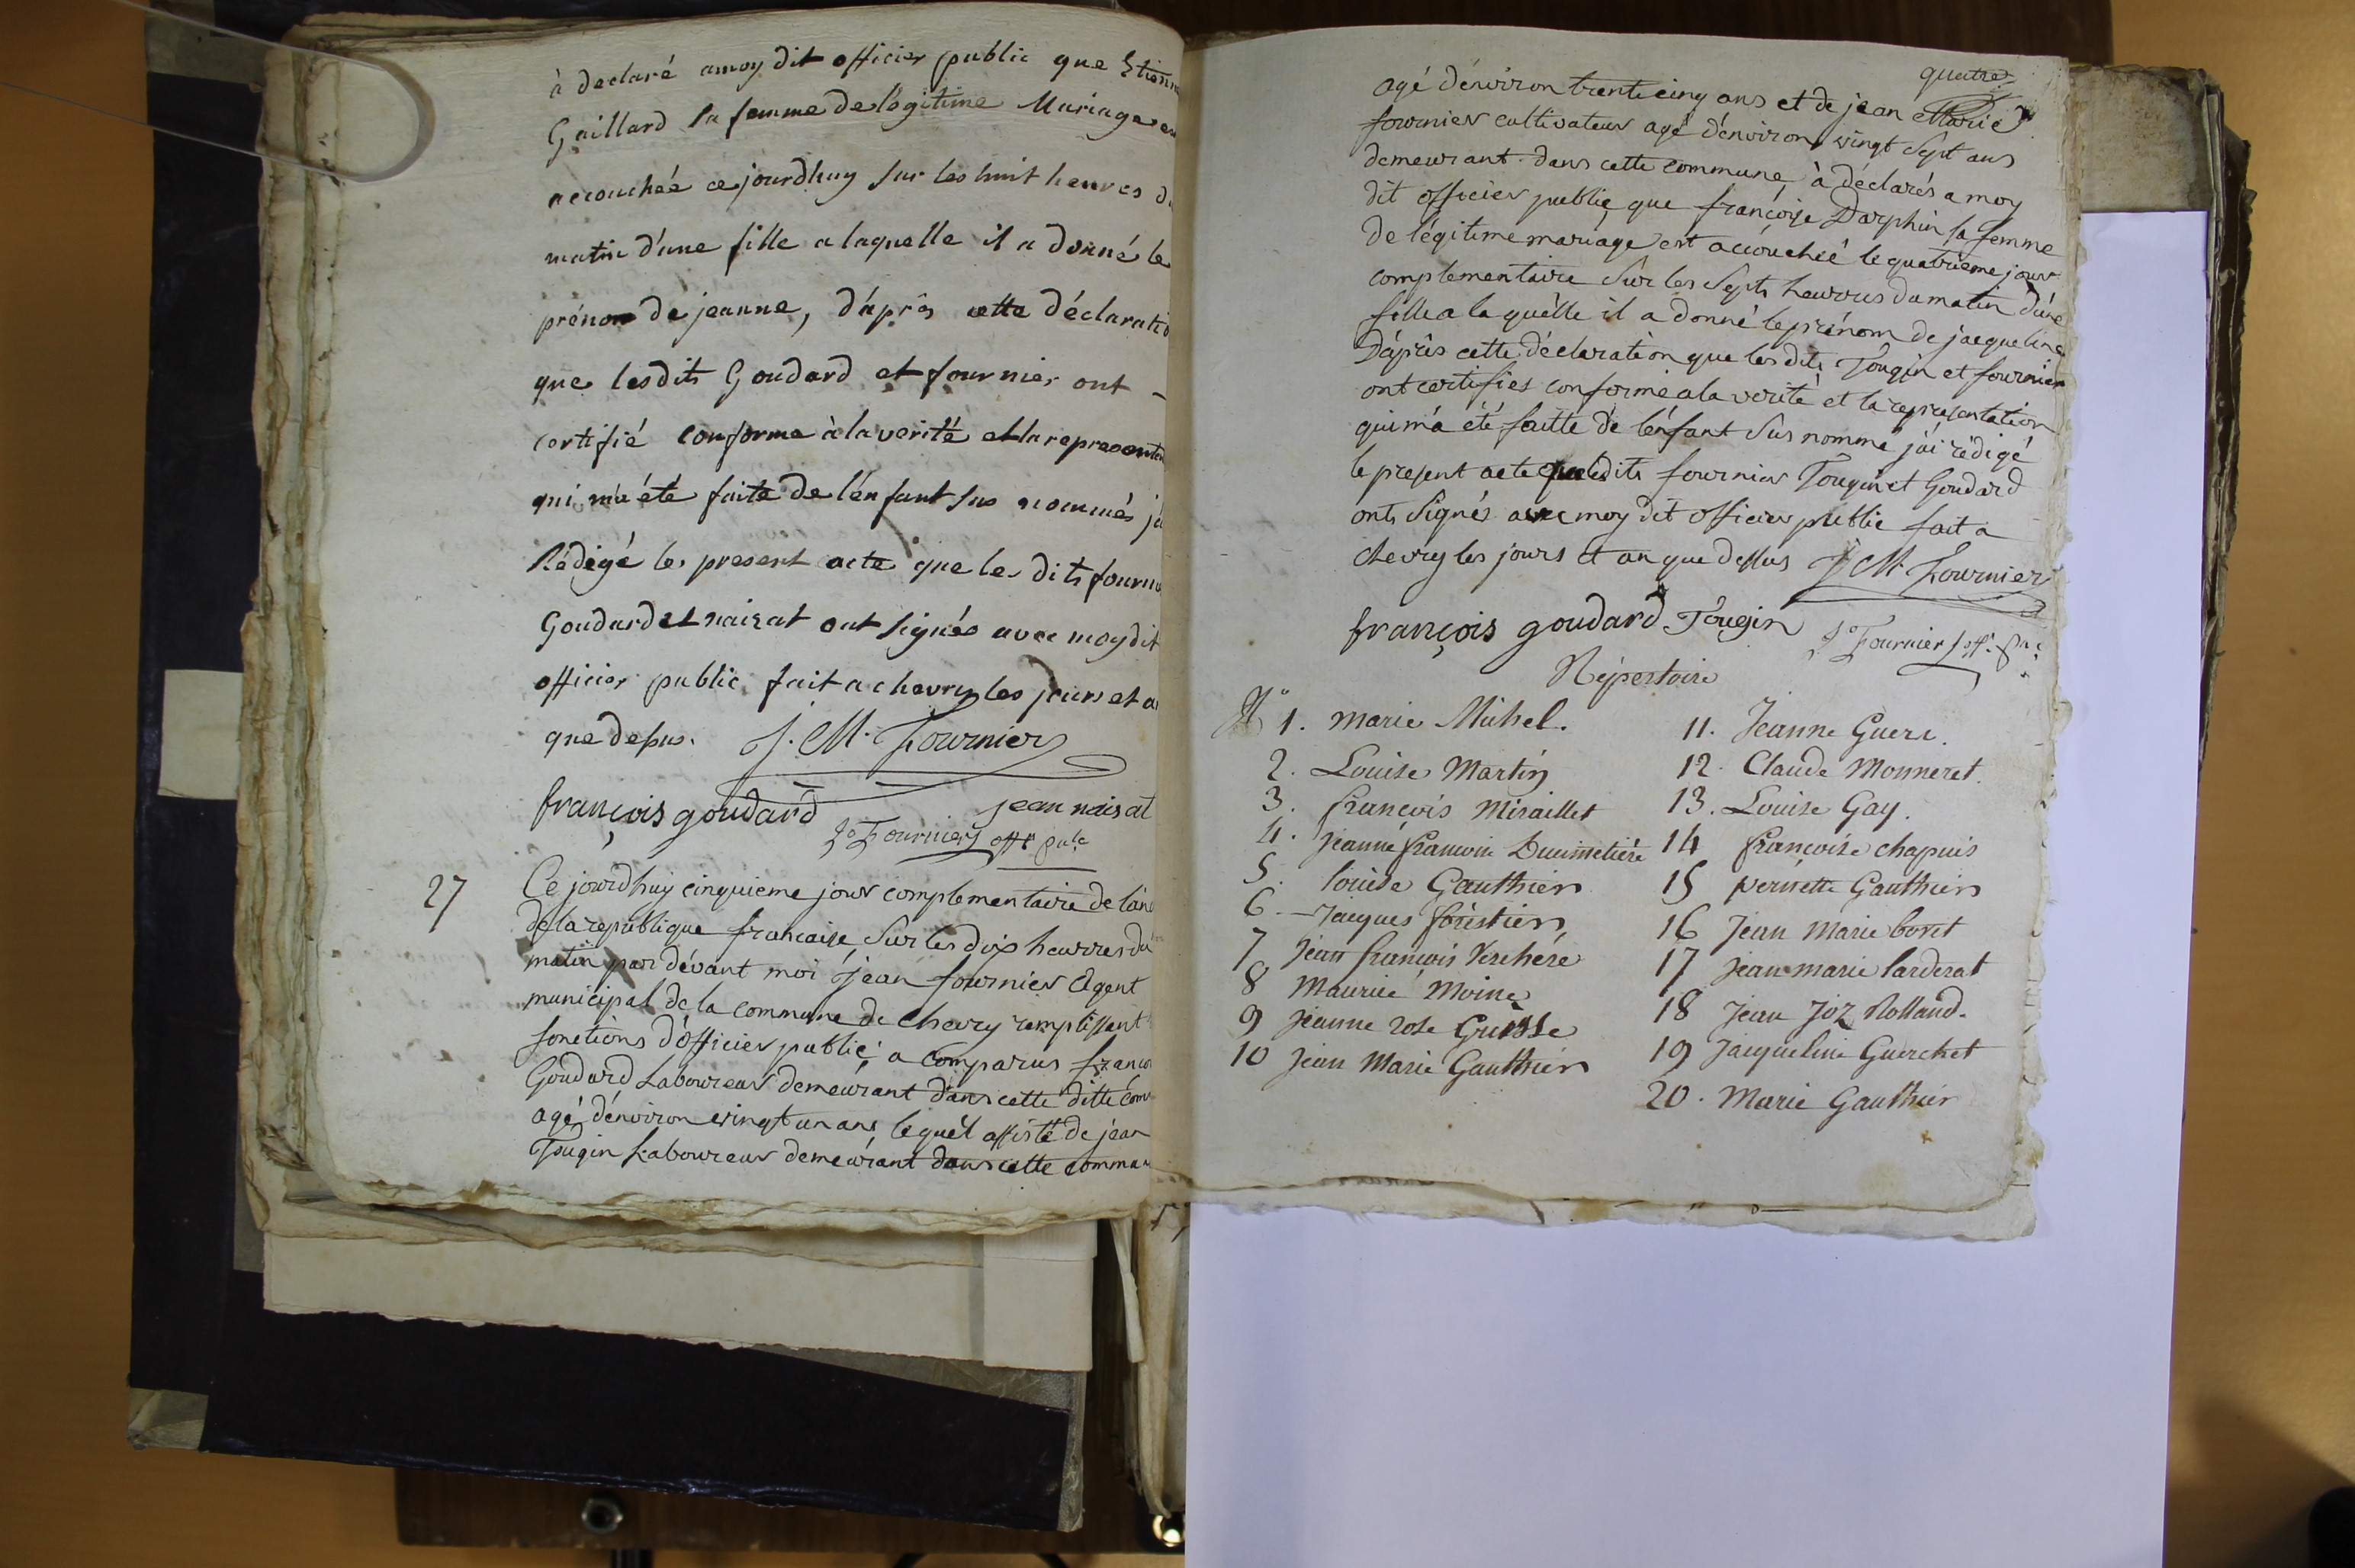 à declaré amoy dit officier public que Etienn
Gaillard sa femme de légitime Mariage es
accouchée ce jourdhuy sur les huit heures d
matin d'une fille a laquelle il a donné le
prénom de jeanne, d'aprês cette déclarati
que lesdits Goudard et fournier ont -
certifié conforme à la verité et la represent
qui m'a été faite de l'énfant sus nommés j'a
Rédigé le present acte que les dits fourn
Goudard et naizat ont signés avec moy dit
officier public fait a chevry les jours et a
que desus. J. M. Fournier
françois goudard jean naisat
Jn Fournier offr puc
27 Ce jourdhuy cinquieme jour complementaire de l'an
de la republique francaise, sur les dix heurres du
matin par dévant moi jean fournier Agent
municipal de la commune de Chevry remplissent
fonctions d'officier public, a comparus franco
Goudard Laboureur demeurant dans cette ditte com
agé d'énviron vingt un ans, lequél assisté de jean
Tougin Laboureur demeurant dans cette commu
quatre
agé d'énviron trente cinq ans et de jean Marie
fournier cultivateur agé d'énviron vingt sept ans
demeurant dans cette commune, à déclarés a moy
dit officier public, que françoise Darphin sa femme
de légitime mariage est accouchéé le quatrieme jour
complementaire sur les septs heurres du matin d'úne
fille a la quélle il a donné le prénom de jacqueline
D'áprês cette déclaration que les dits Tougin et fournier
ont certifiés conforme a la verité et la representation
qui m'a été faitte de l'énfant sus nommé j'ai rédigé
le present acte que lesdits fournier Tougin et Goudard
onts signés avec moy dit officier public fait a
chevry les jours et an que dessus J M. Fournier
françois goudard Tougin
Jn Fournier off. puc
Répertoire
No 1. marie Michel.
2. Louise Martin
3. francois Miraillet
4. jeanne francoise Ducimetiére
5. louise Gauthier
6. jacques forestier
7 jean francois Verchére
8 Maurice Moine
9 jeanne rose Guisse
10 jean Marie Gauthier
11. Jeanne Guere.
12. Claude Monneret.
13. Louise Gay.
14 francoise chapuis
15 pernette Gauthier
16 Jean Marie boret
17 jean marie larderat
18 Jean Joz Rolland.
19 Jacqueline Guerchet
20. Marie Gauthier